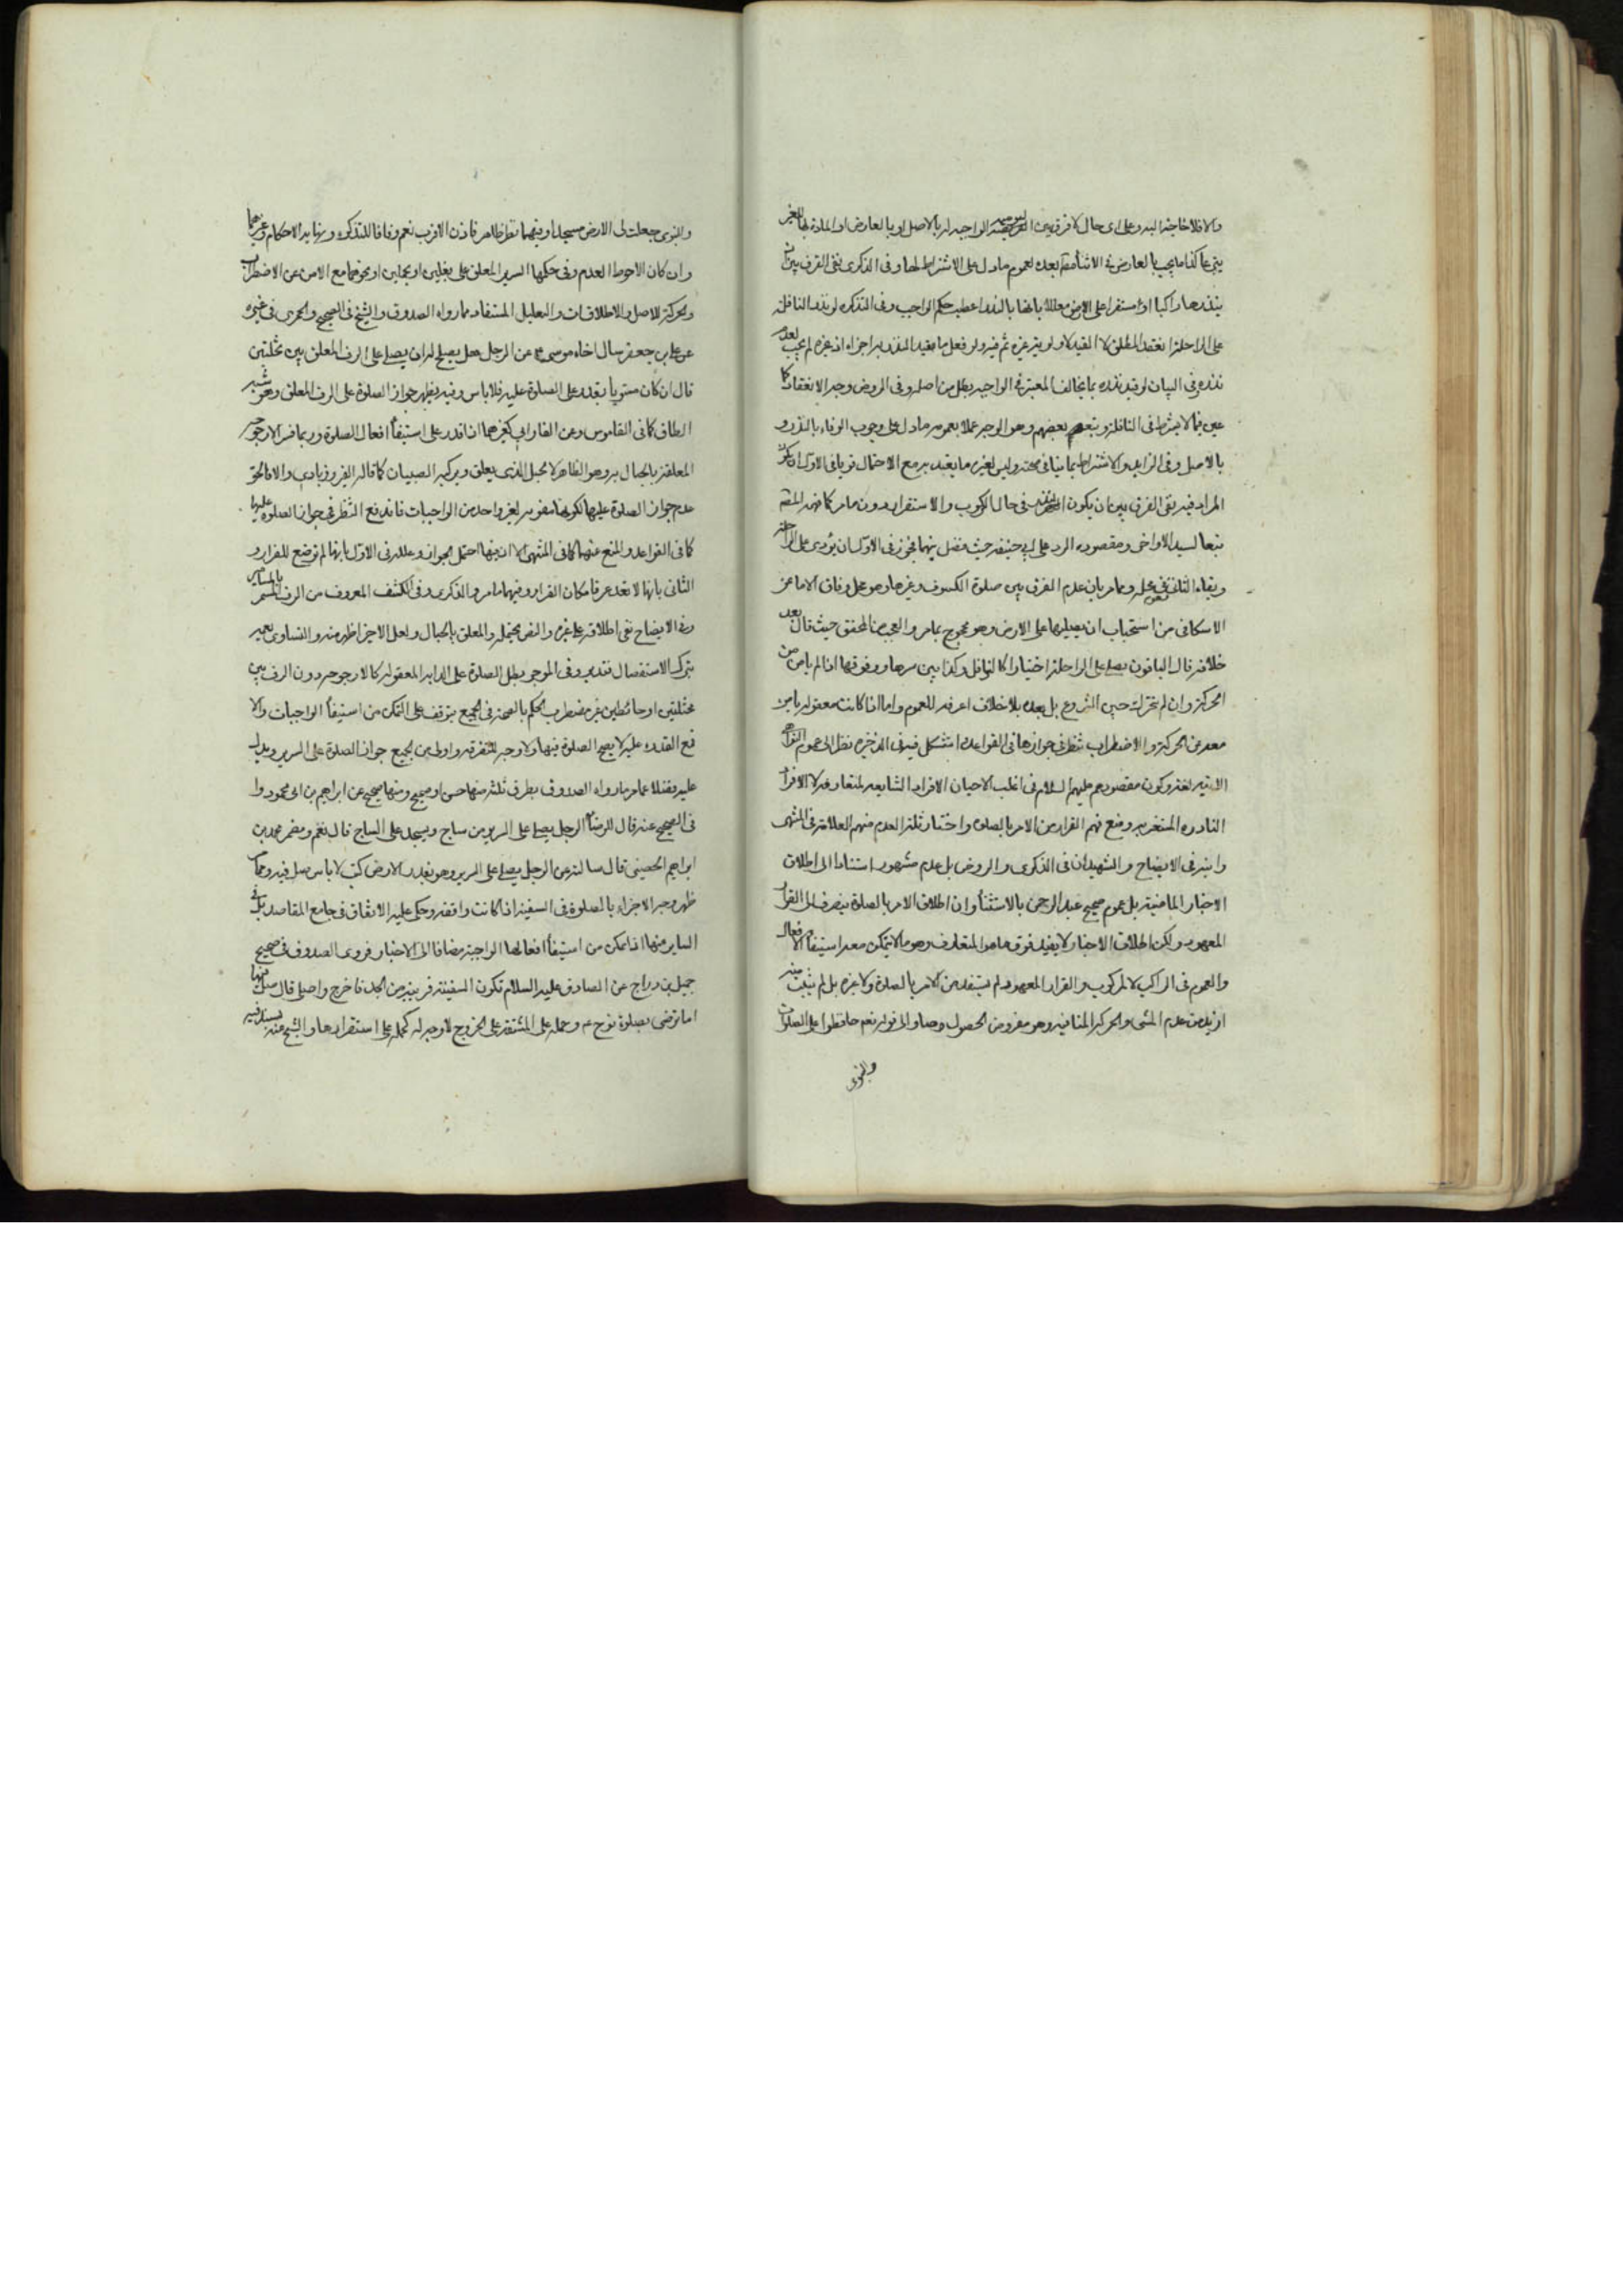 والا فلا حاجة اليه وعلى اى حال لا فرق بين الواجبة بالاصل او بالعارض
كذا ما يجب بالعارض فى الاثناء بعده لعموم ما دل على الاشتراط لها وفى الذكرى نفى الفرق بين ان
ينذرها راكبا او مستقرا على الارض معللا بانها بالنذر اعطيت حكم الواجب وفى التذكره لو نذر النافلة
على الراحلة انعقد المطلق لا القيد ولو فعل ما قيد النذر به اجزأه اذ غيره لم يجب
نذره وفى البيان لو قيد نذره بما يخالف المعتبر فى الواجبة بطل من اصله وفى الروض وجه الانعقاد كما
عين فيما لا يشترط فى النافلة وتبعه بعضهم وهو الوجه عملا بعموم ما دل على وجوب الوفاء بالنذر و
بالاصل وفى الزايد والاشتراط بما ينافى صحته وليس لغيره ما يفيد به مع الاحتمال قويا فى الاول ان يكون
المراد فيه نفى الفرق بين ان يكون فى حال الركوب والاستقرار دون ما مر كما فهمه
تبعا لسيد الاواخر ومقصوده الرد على ابى حنيفه حيث فصل بينهما فجوز فى الاول ان يؤدى على الراحلة
وبقاء الثانى على محله ومما مر بان عدم الفرق بين صلوة الكسوف وغيرها وهو محل وفاق الا ما عن
الاسكافى من استحباب ان يصليها على الارض وهو محجوج بما مر والعجب من المحقق حيث قال بعد
خلافه قال الباقون يصلى على الراحلة اختيارا كالنوافل وكذا بين سيرها ووقوفها اذا لم يامن من
الحركة وان لم تتحرك حين الشروع بل بعده بلا خلاف اعرفه للعموم واما اذا كانت معقولة يامن
معه من الحركة والاضطراب تنظر فى جوازها فى القواعد واستشكل فيه فى الذخيره نظرا الى عموم النواهى
الاتيه لغة وكون مقصودهم عليهم السلام فى اغلب الاحيان الافراد الشايعه المتعارفه لا الافراد
النادره ومنع فهم القرار من الامر بالصلوه واختار ثلثه العدم منهم العلامة فى المنتهى
وابنه فى الايضاح والشهيدان فى الذكرى والروض بل عدم مشهور استنادا الى اطلاق
الاخبار الماضية بل عموم صحيح عبد الرحمن بالاستثناء وان اطلاق الامر بالصلوة ينصرف الى القرار
المعهود ولكن اطلاق الاخبار لا يفيد فوق ما هو المتعارف وهو ما لا يتمكن معه استيفاء الافعال
والعموم فى الراكب لا المركوب والقرار المعهود لم يستفد من الامر بالصلوة ولا غيره بل لم يثبت منه
ازيد من عدم المشى والحركه المنافيه وهو مفروض الحصول وصار الى قوله نعم حافظوا على الصلوات
والنبوى
والنبوى جعلت لى الارض مسجدا وفيهما نظر ظاهر فاذن الاقرب نعم وفاقا للتذكره ونهايه الاحكام وغيرهما
وان كان الاحوط العدم وفى حكمها السرير المعلق على بغلين او نخلتين او نحوهما مع الامن من الاضطراب
والحركة للاصل والاطلاقات والتعليل المستفاد مما رواه الصدوق والشيخ فى الصحيح والحميرى فى غيره
عن على بن جعفر سال اخاه موسى ع عن الرجل هل يصلح له ان يصلى على الرف المعلق بين نخلتين
قال ان كان مستويا يقدر على الصلوة عليه فلا باس وفيه يظهر جواز الصلوة على الرف المعلق وهو شبه
الطاق كما فى القاموس وعن الفارابى كغيرهما اذا قدر على استيفاء افعال الصلوة وربما فسر الارجوحه
المعلقة بالحبال به وهو الظاهر لا حبل الذى يعلق ويركبه الصبيان كما قاله الفيروزبادى والا فالحق
عدم جواز الصلوة عليها لكونها مفوته لغير واحد من الواجبات فاندفع النظر فى جواز الصلوة عليها
كما فى القواعد والمنع عنها كما فى المنتهى الا ان فيها احتمل الجواز وعلله فى الاول بانها لم توضع للقرار و
الثانى بانها لا تعد عرفا مكان القرار وفيهما ما مر والذكرى وفى الكشف المعروف من الرف المسمر بالمسامير
وفى الايضاح نفى اطلاقه على غيره والنص محتمله والمعلق بالحبال ولعل الاخير اظهر منه والتساوى
بترك الاستفصال فتدبر وفى الموجز يبطل الصلوة على الدابه المعقوله كالارجوحه دون الرف بين
نخلتين او حائطين غير مضطرب والحكم بالصحة فى الجميع يتوقف على التمكن من استيفاء الواجبات والا
فمع القدره عليه لا يصح الصلوة فيها ولا وجه للتفرقه واولى من الجميع جواز الصلوة على السرير ويدل
عليه فضلا عما مر ما رواه الصدوق بطرق ثلثه منها حسن او صحيح ومنها صحيح عن ابراهيم بن ابى محمود وا
فى الصحيح عنه قال للرضا الرجل يصلى على السرير من ساج ويسجد على الساج قال نعم ومضمر محمد بن
ابراهيم الحضينى قال سالته عن الرجل يصلى على السرير وهو يقدر الارض كتب لا باس صل فيه ومما
ظهر وجه الاجزاء بالصلوة فى السفينه اذا كانت واقفه وحكى عليه الاتفاق فى جامع المقاصد بل فى
الساير منها اذا تمكن من استيفاء افعالها الواجبة مضافا الى الاخبار فروى الصدوق فى صحيح
جميل بن دراج عن الصادق عليه السلام تكون السفينة قريبة من الجد فاخرج واصلى قال صل فيها
اما ترضى بصلوة نوح ع وحمله على المشقة على الخروج لا وجه له كحمله على استقرارها والشيخ